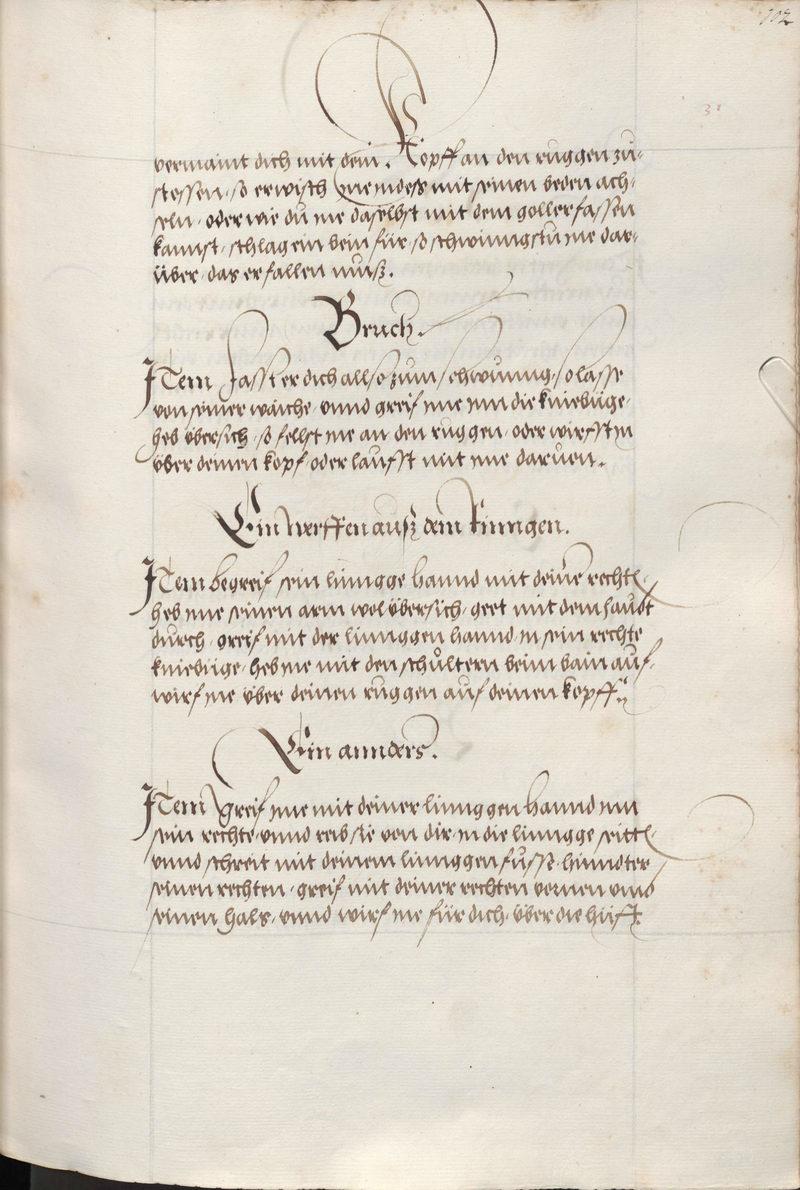 102
vermaint dich mit dem Kopff an den ruggen zu-
stossen, so erwisch ine indess mit seinen beden ach-
seln, oder wie du ine daselbst mit dem goller fassen
kannst, schlag ein bein für so schwingstu ine dar-
über, das er fallen muß.
Bruch.
ITem fasst er dich allso zum schwunng, so lasse
von seiner waiche, unnd greif ime inn die kniebüge,
heb übersich, so fellst ine an den ruggen, oder wirfst in
über deinen kopf, oder laufst mit ime darvon.
Ein werffen auß dem Ringen.
ITem begreif sein linngge hannd mit deine rechte,
heb ime seinen arm wol übersich, geet mit dem haubt
durch, greif mit der linnggen hannd in sein rechte
kniebüge, heb ine mit den schultern beim bain auf,
wirf ine über deinen ruggen auf deinen kopff.
Ein annders.
ITem greif ime mit deiner linnggen hannd inn
sein rechte, unnd reib sie von dir in die linngge seitte,
unnd schreit mit deinem linnggen fuss, hinndter
seinen rechten, greif mit deiner rechten vornen umb
seinen hals, unnd wirf ine für dich, über die hüft.